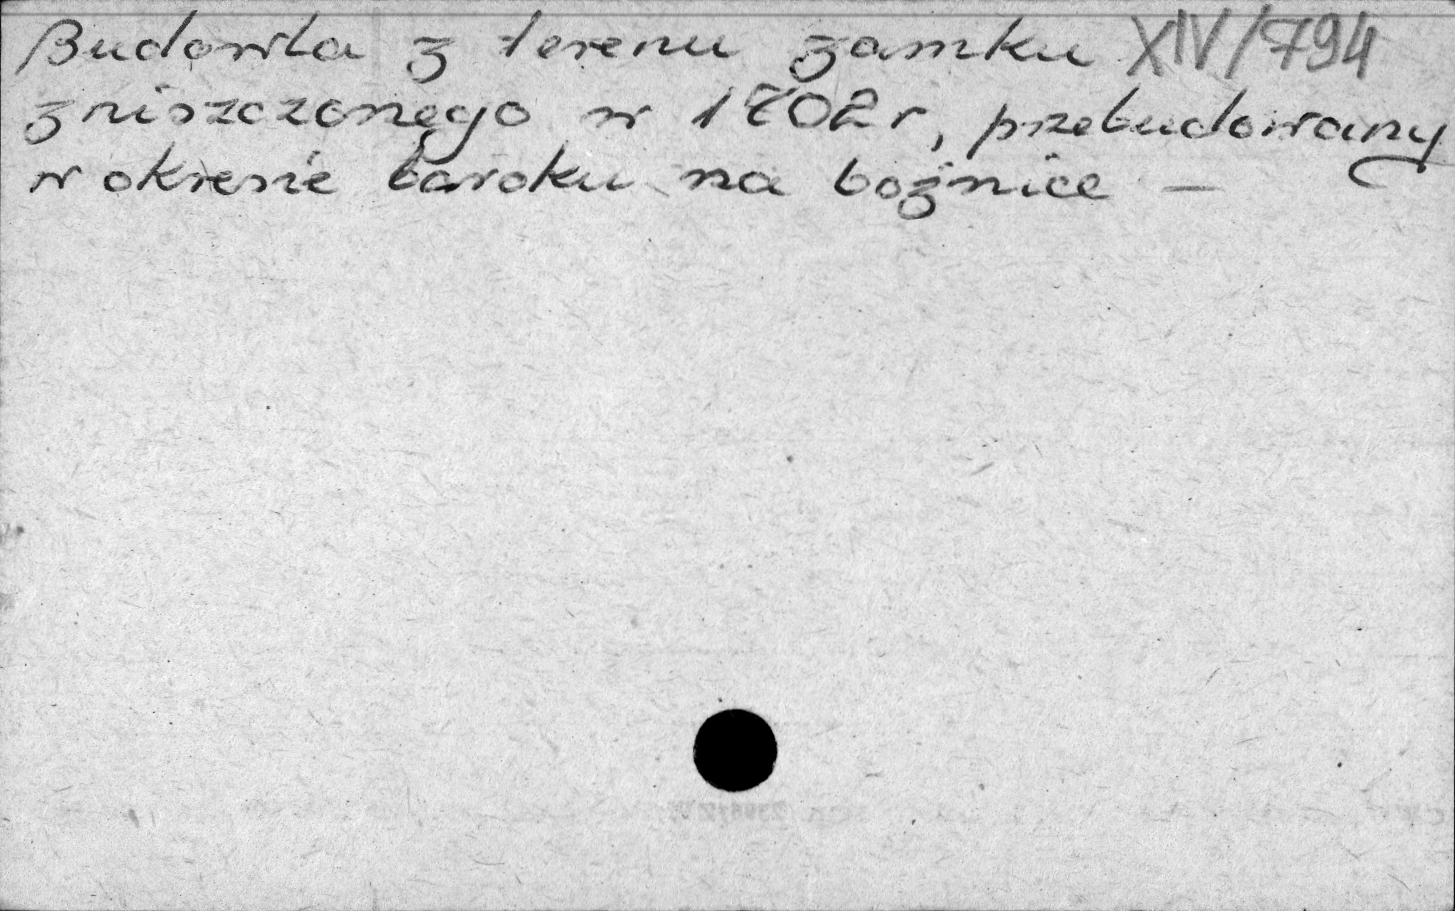 Budowla z terenu zamku XIV/794
zniszczonego w 1702 r, przebudowany
w okresie baroku na bożnice —